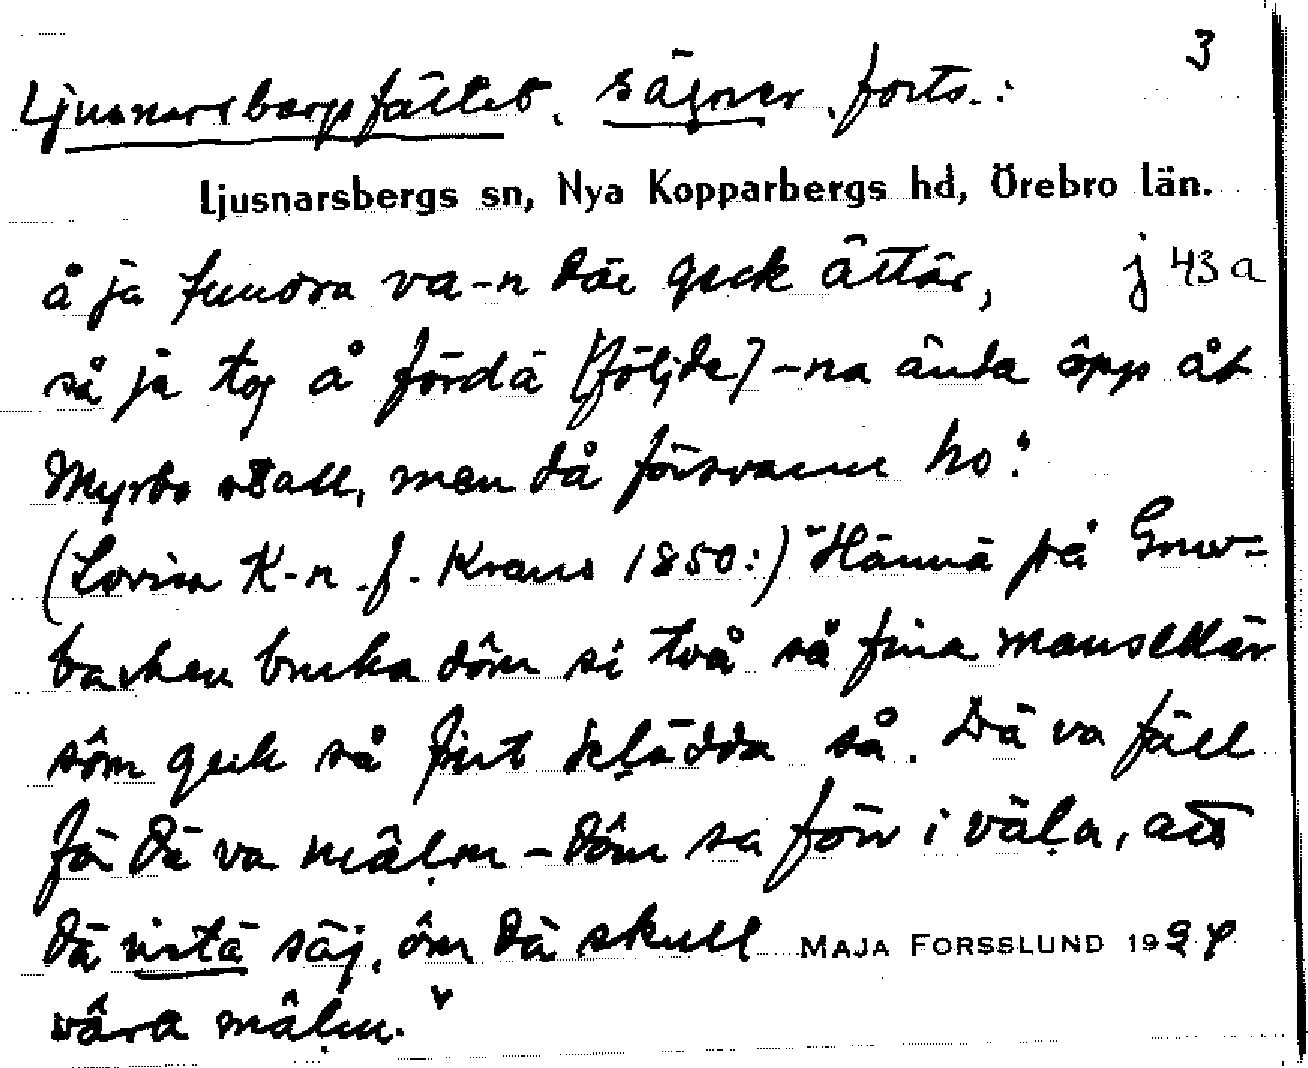 3
Ljusnarsbergsfältet, sägner, forts.:
Ljusnarsbergs sn, Nya Kopparbergs hd, Örebro län.
å ja fundra va-n däe geck ättär, j 43 a
så ja tog å fördä [följde]-na ända ôpp åt
Myrbo stall, men då försvann ho."
(Lovisa K-n f. Kraus 1850:) "Hännä på Gruv=
backen bruka dôm si två så fina mansekär
sôm geck så fint kḷädda så. Dä va fäll
fö dä va mâḷm - dôm sa förr i väḷa, att
dä vistä säj, ôm dä skull MAJA FORSSLUND 1924
vâra mâḷm."